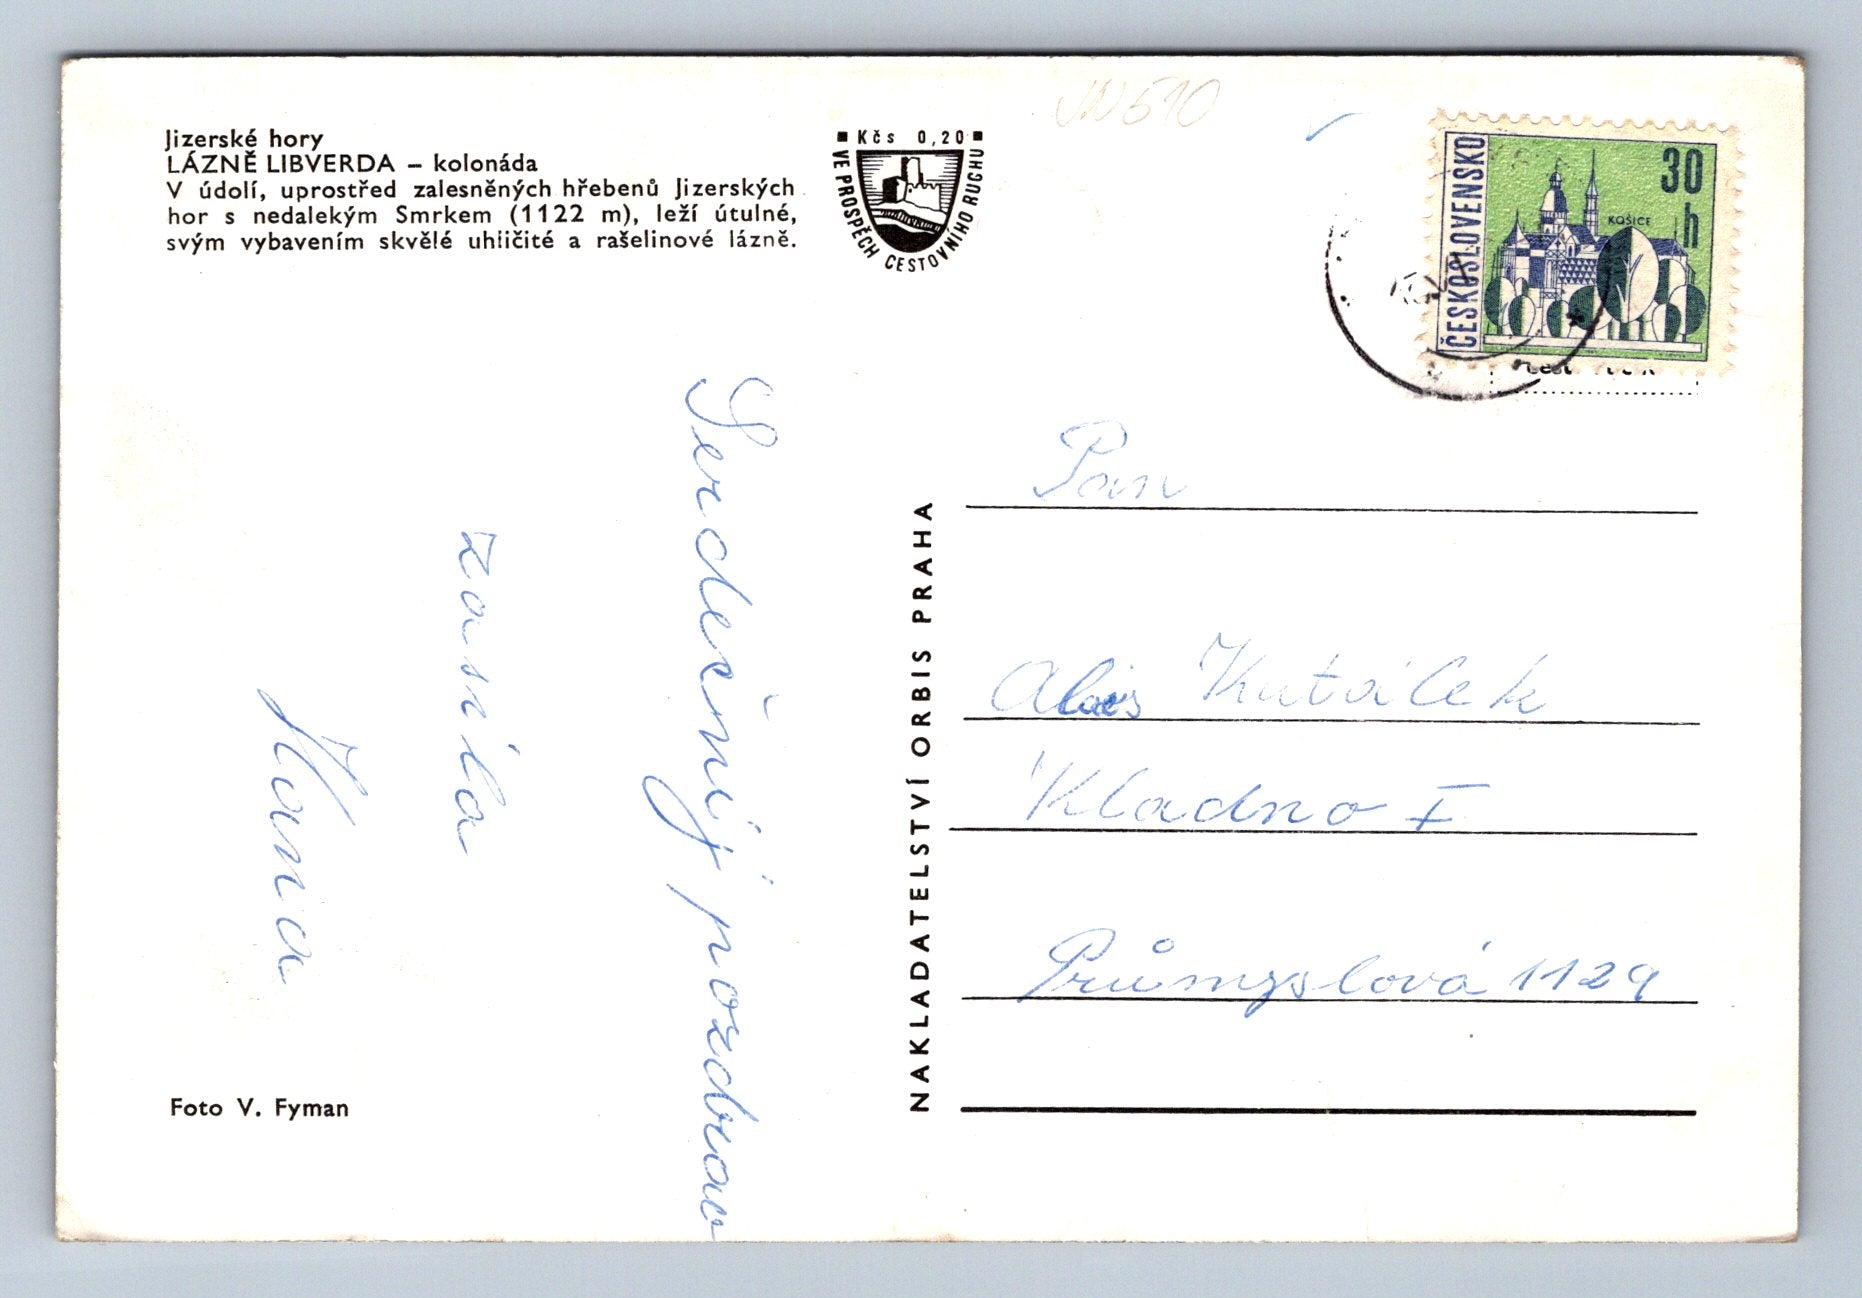 Jizerské hory
LÁZNĚ LIBVERDA – kolonáda
V údolí, uprostřed zalesněných hřebenů Jizerských
hor s nedalekým Smrkem (1122 m), leží útulné,
svým vybavením skvělé uhličité a rašelinové lázně.
Kčs 0,20
VE PROSPĚCH CESTOVNÍHO RUCHU
ČESKOSLOVENSKO
30
h
KOŠICE
Srdečný pozdrav
zasílá
Hana
Foto V. Fyman
NAKLADATELSTVÍ ORBIS PRAHA
Pan
Kutáček
Kladno I
Průmyslová 1129